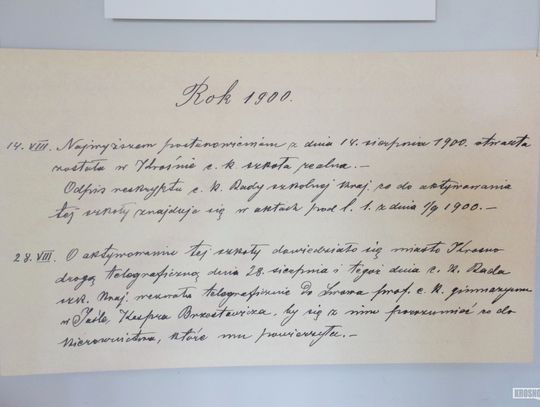 Rok 1900.
14. VIII. Najwyższem postanowieniem z dnia 14. sierpnia 1900. otwarta
została w Krośnie c. k. szkoła realna. –
Odpis reskryptu c. k. Rady szkolnej kraj. co do aktywowania
tej szkoły znajduje się w aktach pod l. 1. z dnia 1/9 1900. –
28. VIII. O aktywowaniu tej szkoły dowiedziało się miasto Krosno
drogą telegraficzną dnia 28. sierpnia i tegoż dnia c. k. Rada
szk. kraj. wezwała telegraficznie do Lwowa prof. c. k. gimnazyum
w Jaśle, Kaspra Brzostowicza, by się z nim porozumieć co do
kierownictwa, które mu powierzyła. –
KROSNO